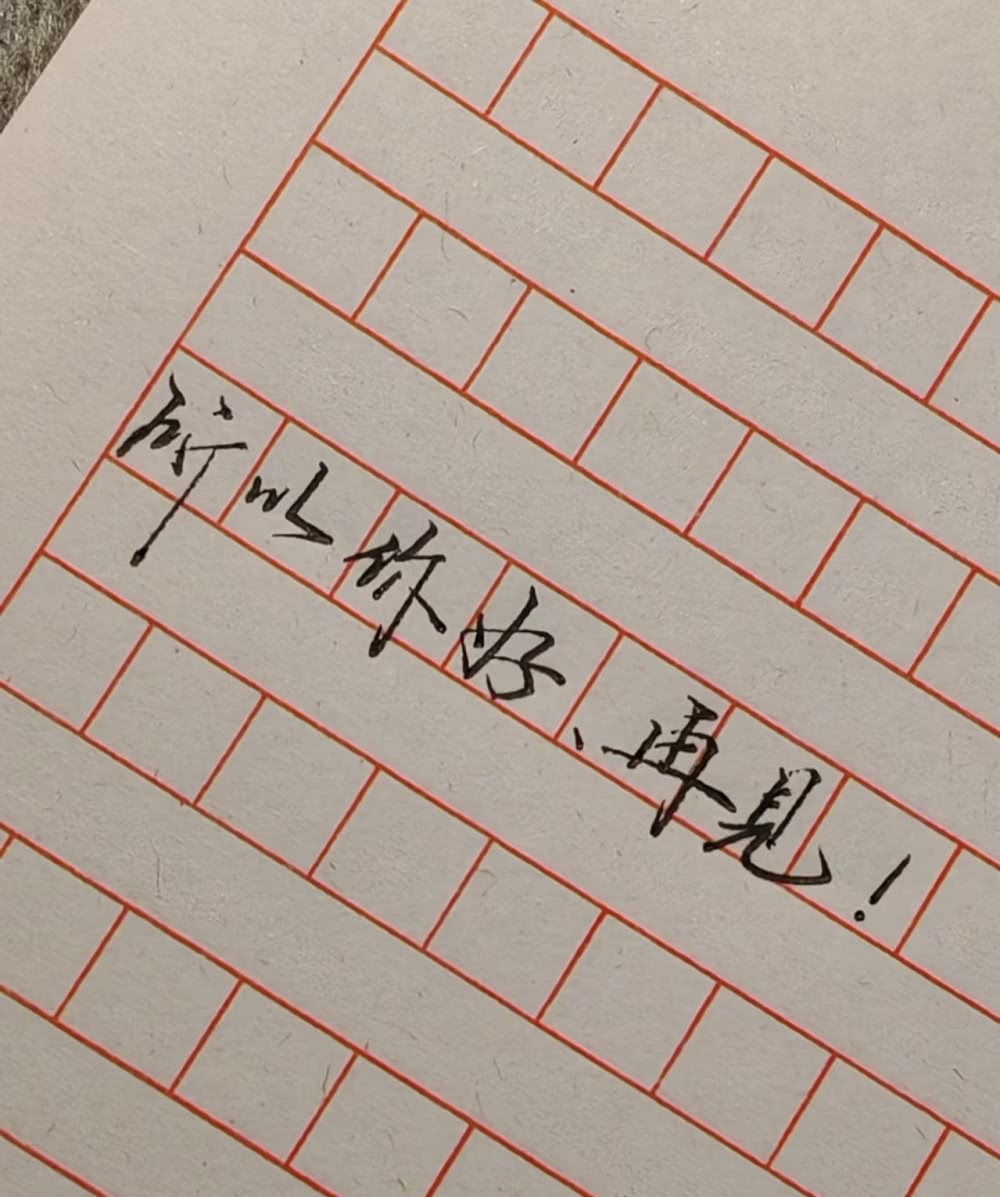 所以你好、再见！